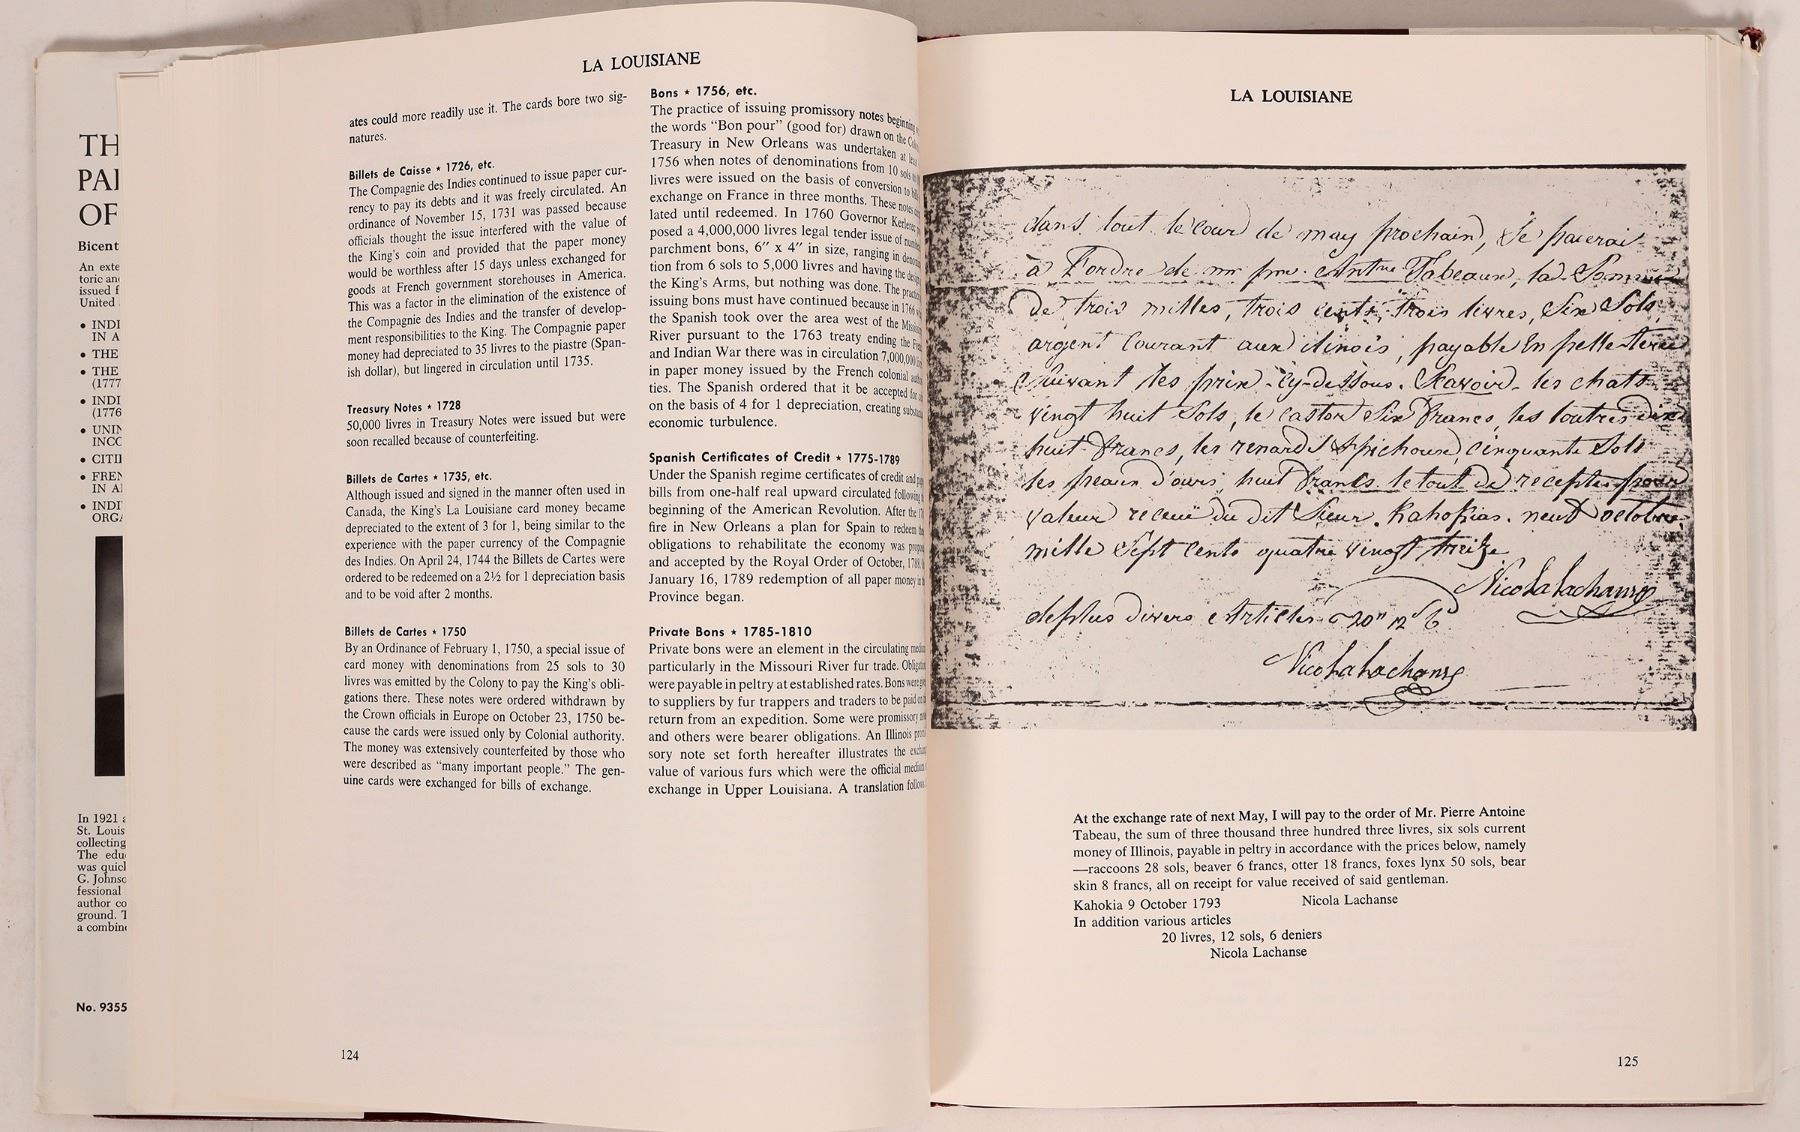 TH
PA
OF
Bicent
An exte
toric an
issued f
United
• INDI
IN A
• THE
• THE
(1777
• INDI
(1776
• UNI
INCO
• CITI
• FREN
IN A
• INDI
ORGA
In 1921
St. Louis
collecting
The edu
was quic
G. Johnso
fessional
author co
ground. T
a combin
No. 9355
LA LOUISIANE
ates could more readily use it. The cards bore two sig-
natures.
Billets de Caisse ★ 1726, etc.
The Compagnie des Indies continued to issue paper cur-
rency to pay its debts and it was freely circulated. An
ordinance of November 15, 1731 was passed because
officials thought the issue interfered with the value of
the King's coin and provided that the paper money
would be worthless after 15 days unless exchanged for
goods at French government storehouses in America.
This was a factor in the elimination of the existence of
the Compagnie des Indies and the transfer of develop-
ment responsibilities to the King. The Compagnie paper
money had depreciated to 35 livres to the piastre (Span-
ish dollar), but lingered in circulation until 1735.
Treasury Notes ★ 1728
50,000 livres in Treasury Notes were issued but were
soon recalled because of counterfeiting.
Billets de Cartes ★ 1735, etc.
Although issued and signed in the manner often used in
Canada, the King's La Louisiane card money became
depreciated to the extent of 3 for 1, being similar to the
experience with the paper currency of the Compagnie
des Indies. On April 24, 1744 the Billets de Cartes were
ordered to be redeemed on a 2½ for 1 depreciation basis
and to be void after 2 months.
Billets de Cartes ★ 1750
By an Ordinance of February 1, 1750, a special issue of
card money with denominations from 25 sols to 30
livres was emitted by the Colony to pay the King's obli-
gations there. These notes were ordered withdrawn by
the Crown officials in Europe on October 23, 1750 be-
cause the cards were issued only by Colonial authority.
The money was extensively counterfeited by those who
were described as "many important people." The gen-
uine cards were exchanged for bills of exchange.
124
Bons ★ 1756, etc.
The practice of issuing promissory notes beginning
the words "Bon pour" (good for) drawn on the
Treasury in New Orleans was undertaken at
1756 when notes of denominations from 10 sols
livres were issued on the basis of conversion to
exchange on France in three months. These notes
lated until redeemed. In 1760 Governor Kerlerec
posed a 4,000,000 livres legal tender issue of
parchment bons, 6" x 4" in size, ranging in
tion from 6 sols to 5,000 livres and having the
the King's Arms, but nothing was done. The
issuing bons must have continued because in 1766
the Spanish took over the area west of the
River pursuant to the 1763 treaty ending the
and Indian War there was in circulation 7,000,000
in paper money issued by the French colonial
ties. The Spanish ordered that it be accepted
on the basis of 4 for 1 depreciation, creating
economic turbulence.
Spanish Certificates of Credit ★ 1775-1789
Under the Spanish regime certificates of credit and
bills from one-half real upward circulated following
beginning of the American Revolution. After the
fire in New Orleans a plan for Spain to redeem
obligations to rehabilitate the economy was
and accepted by the Royal Order of October,
January 16, 1789 redemption of all paper money
Province began.
Private Bons ★ 1785-1810
Private bons were an element in the circulating
particularly in the Missouri River fur trade.
were payable in peltry at established rates. Bons were
to suppliers by fur trappers and traders to be paid
return from an expedition. Some were promissory
and others were bearer obligations. An Illinois
sory note set forth hereafter illustrates the
value of various furs which were the official medium
exchange in Upper Louisiana. A translation follows
LA LOUISIANE
dans tout le cour de may prochain, Je paierai
à l'ordre de mr pre. Antne Tabeaux, la Somme
de trois milles, trois cents trois livres, Six Sols,
argent Courant aux ilinois, payable En pelleterie
Suivant les prix-cy-dessous. Scavoir. les chats
vingt huit Sols, le castor Six francs, les loutres dix
huit francs, les renards & pichoux, cinquante Sols
les peaux d'ours huit francs. le tout de recepte pour
valeur receuë du dit Sieur. Kahokias. neuf octobre
mille Sept cents quatre vingt treize
Nicola Lachanse
deplus divers Articles 20" 12 6
Nicola Lachanse
At the exchange rate of next May, I will pay to the order of Mr. Pierre Antoine
Tabeau, the sum of three thousand three hundred three livres, six sols current
money of Illinois, payable in peltry in accordance with the prices below, namely
—raccoons 28 sols, beaver 6 francs, otter 18 francs, foxes lynx 50 sols, bear
skin 8 francs, all on receipt for value received of said gentleman.
Kahokia 9 October 1793 Nicola Lachanse
In addition various articles
20 livres, 12 sols, 6 deniers
Nicola Lachanse
125